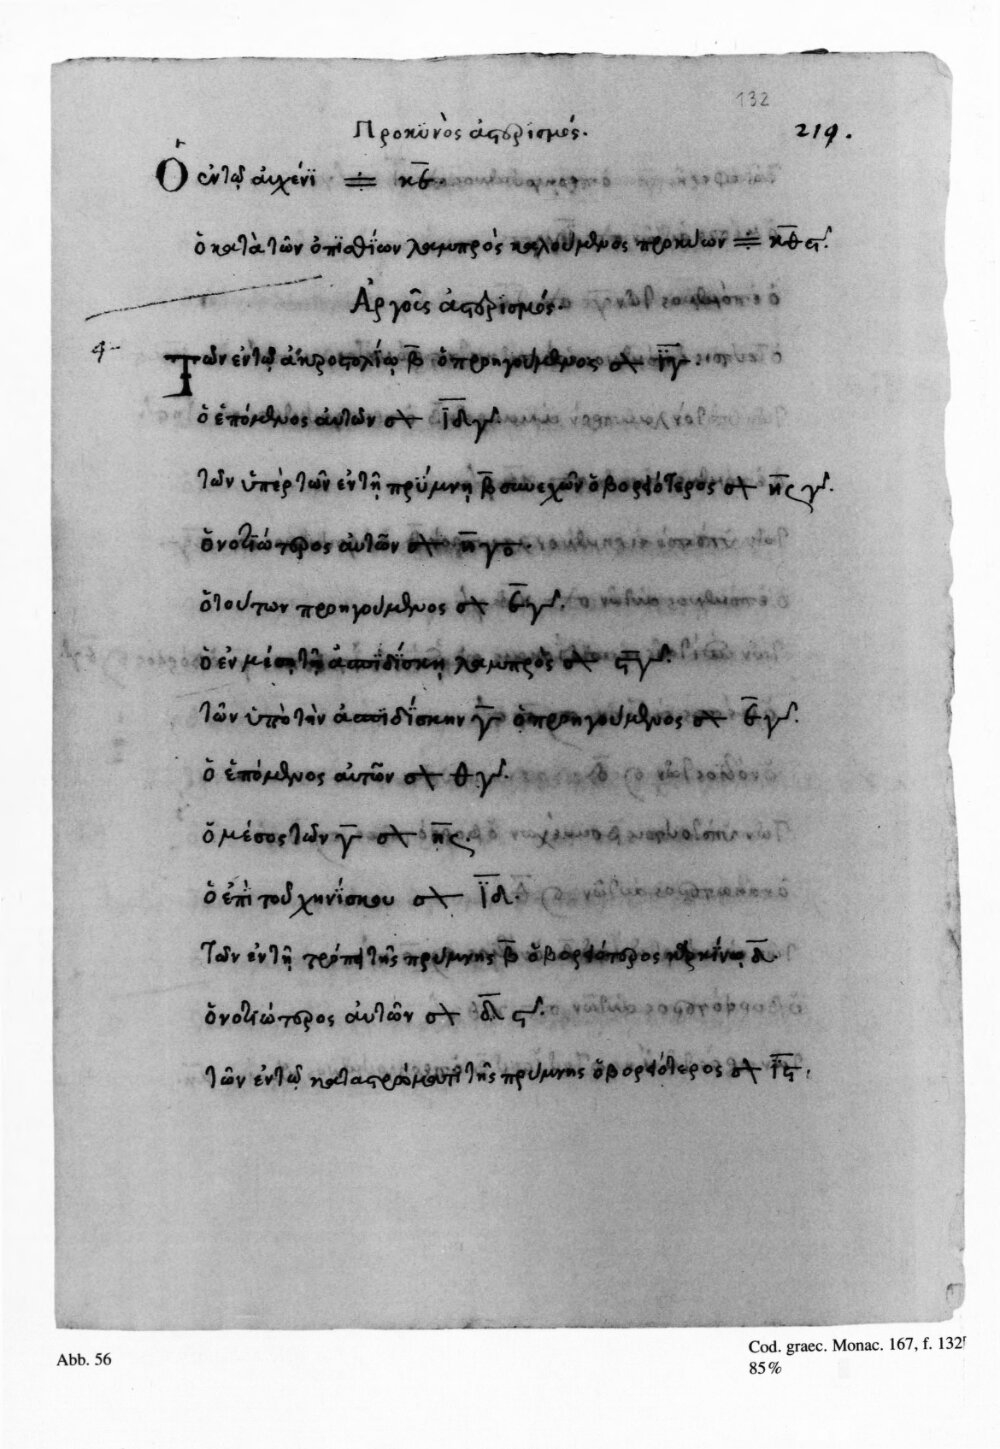 132
Προκϋνὸς ἀστερισμός. 219.
Ὁ ἐντῷ αὐχένϊ ♊ κ̅ε̅.
ὁ κατὰ τῶν ὀπϊσθΐων λαμπρὸς καλούμενος προκύων ♊ κ̅θ̅ ϛʹ.
Ἀργοῦς ἀστερισμός.
Τῶν ἐντῷ ἀκροστολίῳ β̅ ὁ προηγούμενος ♋ ι̅γ̅.
ὁ ἑπόμενος αὐτῶν ♋ ι̅δ̅ γʹ.
τῶν ὑπὲρ τῶν ἐν τῇ πρύμνῃ β̅ συνεχῶν ὁ βορειότερος ♋ η̅ ϛ γʹ.
ὁ νοτϊώτερος αὐτῶν ♋ η̅ γο.
ὁ τούτων προηγούμενος ♋ ε̅ γʹ.
ὁ ἐν μέσῃ τῇ ἀσπϊδΐσκῃ λαμπρὸς ♋ ϛ̅ γʹ.
τῶν ὑπὸ τὴν ἀσπϊδΐσκην γ̅ ὁ προηγούμενος ♋ ε̅ γʹ.
ὁ ἑπόμενος αὐτῶν ♋ θ γʹ.
ὁ μέσος τῶν γ̅ ♋ η̅ ϛ.
ὁ ἐπὶ τοῦ χηνΐσκου ♋ ι̅δ̅.
Τῶν ἐν τῇ τρόπι τῆς πρύμνης β̅ ὁ βορειότερος καρκίνῳ δ̅.
ὁ νοτϊώτερος αὐτῶν ♋ δ̅ ϛʹ.
τῶν ἐν τῷ καταστρώματι τῆς πρύμνης ὁ βορειότερος ♋ ι̅ϛ̅.
Abb. 56
Cod. graec. Monac. 167, f. 132r
85%